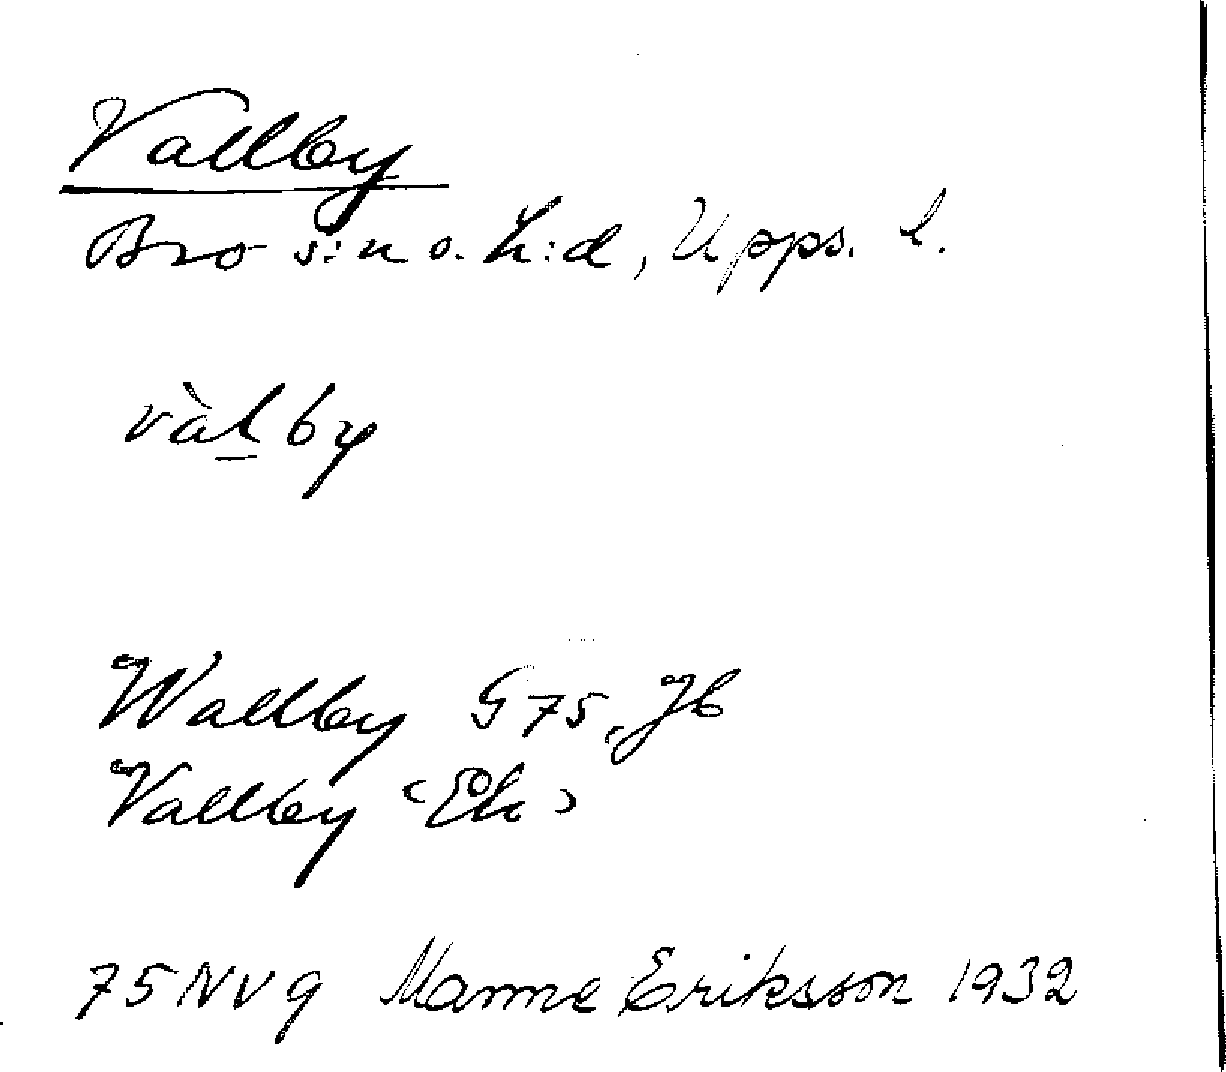 Vallby
Bro s:n o. h:d, Upps. l.
vàl̲by
Wallby G75, Jb
Vallby (Ek)
75 NV g Manne Eriksson 1932